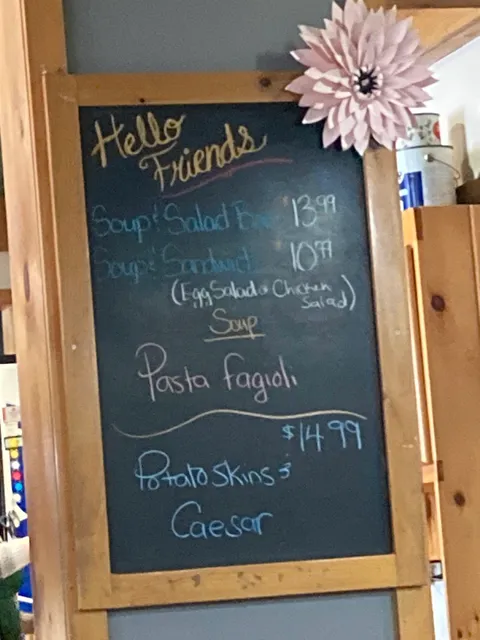 Hello
Friends
Soup & Salad 13.99
Soup & Sandwich 10.99
(Egg Salad or Chicken
Salad)
Soup
Pasta fagioli
$14.99
Potato Skins &
Caesar